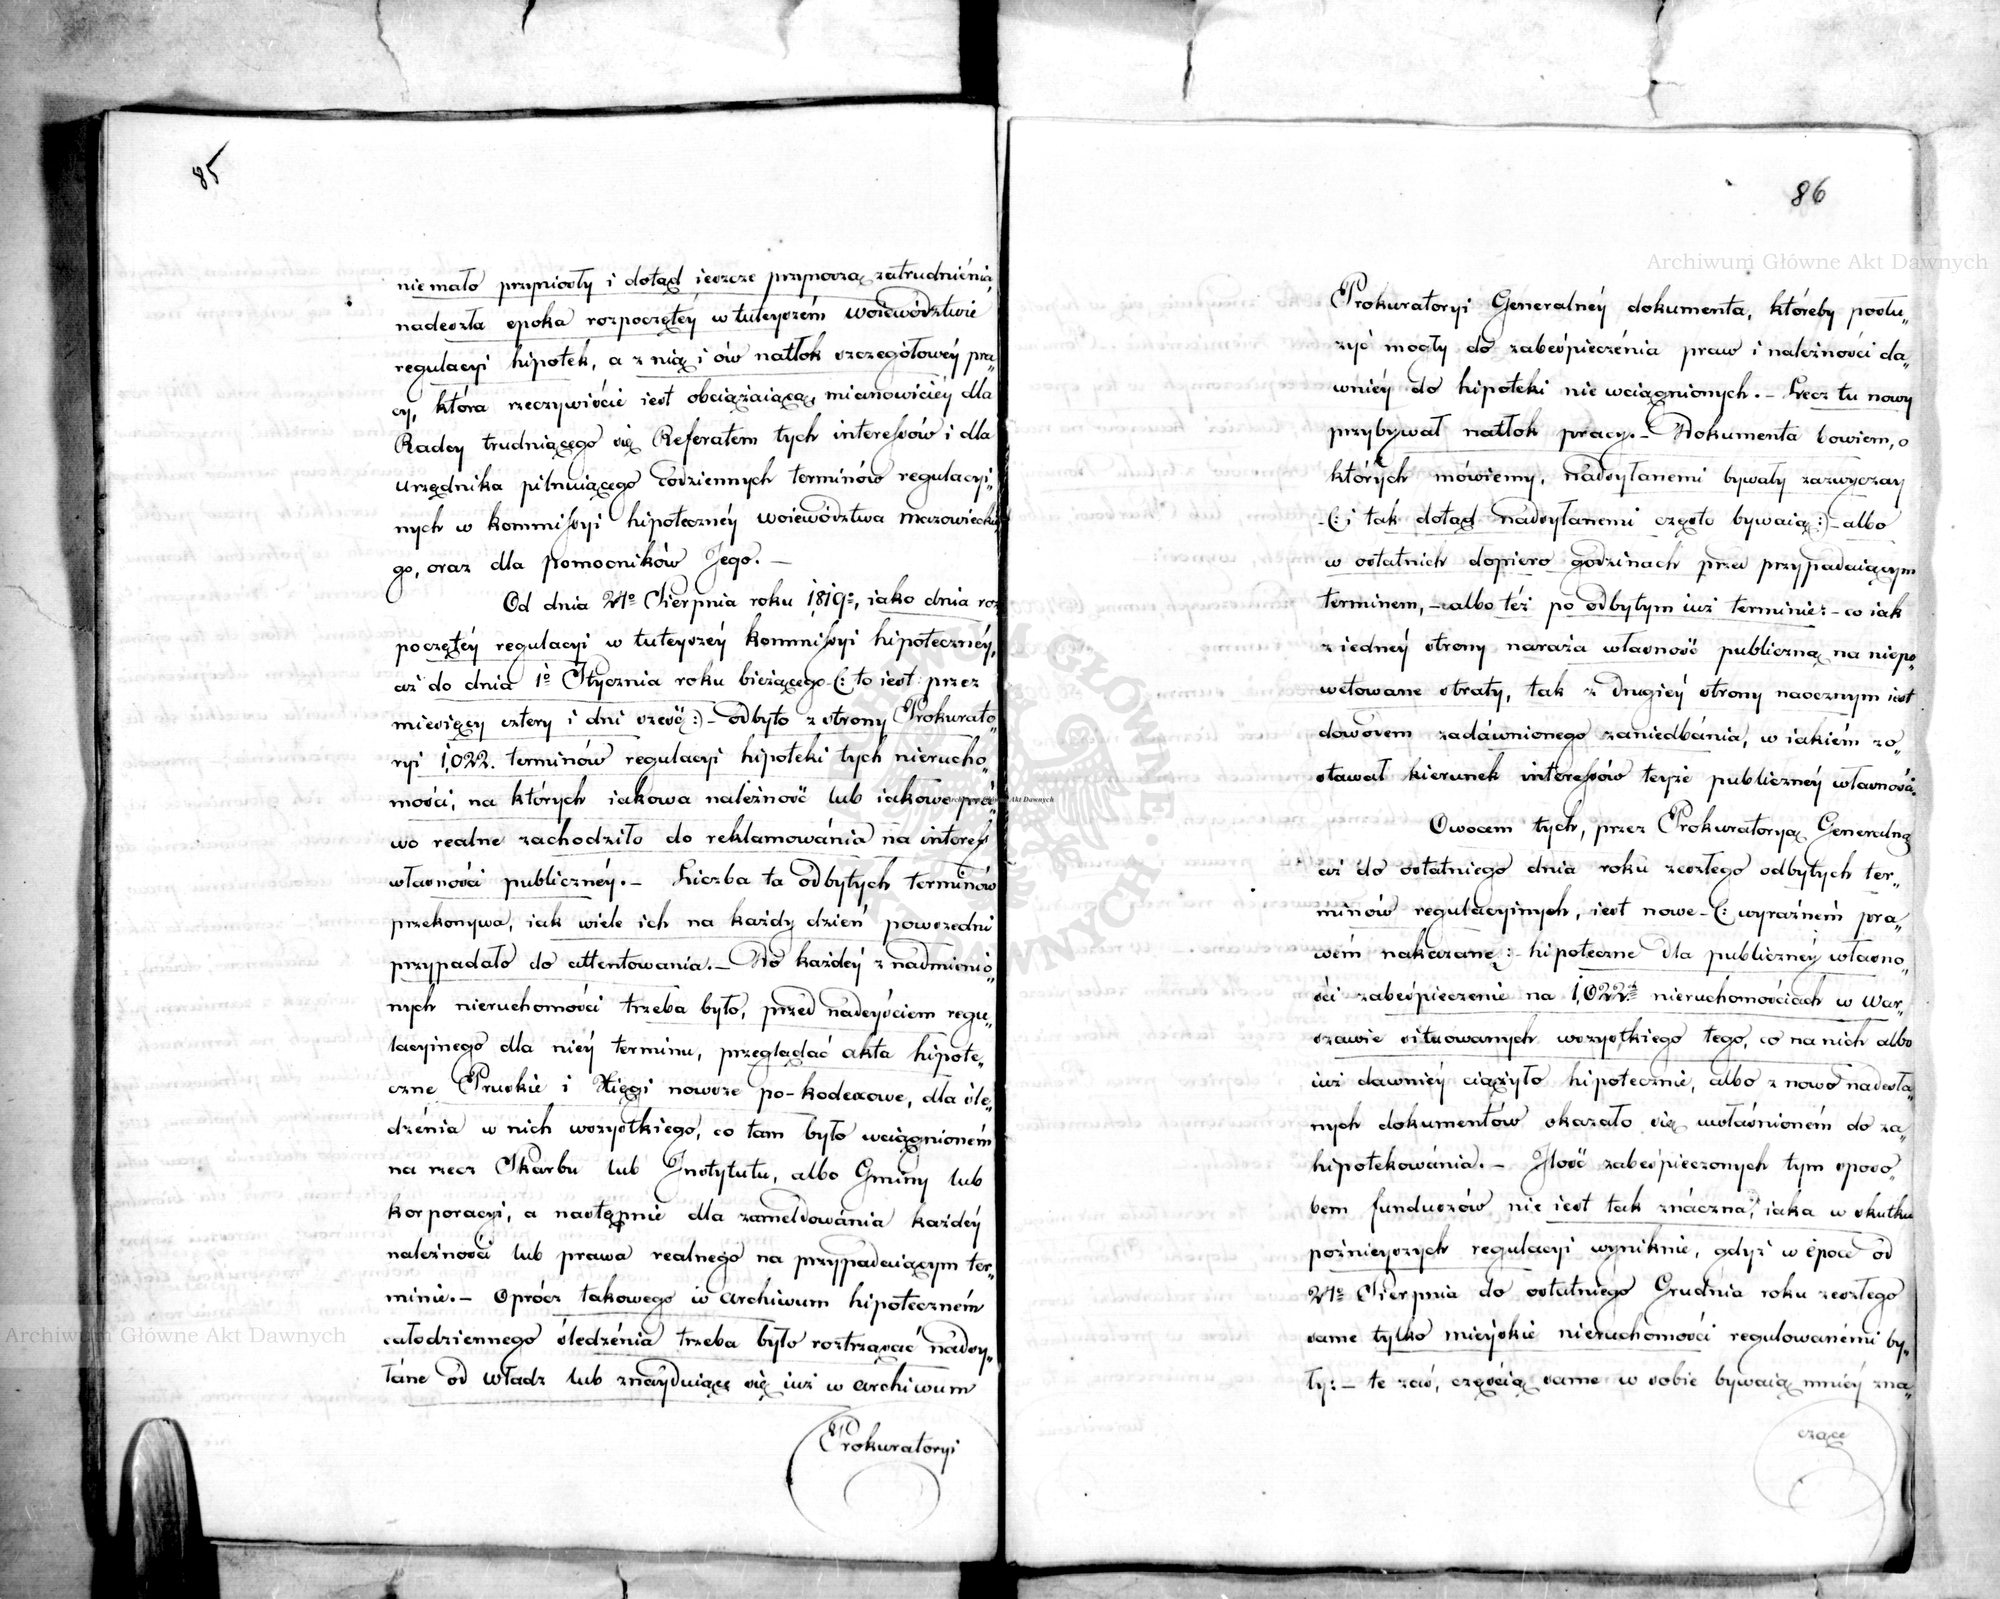 85
niemało przyniosły i dotąd ieszcze przynoszą zatrudniénia,
nadeszła epoka rozpoczętéy w tuteyszém Woiewództwie
regulacyi hipoték, a z nią i ów natłok szczegółowéy pra„
cy, która rzeczywiście iest obciążaiącą, mianowiciéy dla
Radcy trudniącego się Referatem tych interessów i dla
Urzędnika pilnuiącego codziennych terminów regulacyi„
nych w kommissyi hipotecznéy Województwa Mazowieckie„
go, oraz dla pomocników Jego. —
Od dnia 24o Sierpnia roku 1819o, iako dnia roz
poczętéy regulacyi w tuteyszéy kommissyi hipotecznéy,
aż do dnia 1o Stycznia roku bieżącego (: to iest przez
miesięcy cztery i dni sześć :) — odbyło z strony Prokurato„
ryi 1,022. terminów regulacyi hipoteki tych nierucho„
mości, na których iakowa należność lub iakowe pra„
wo realne zachodziło do reklamowánia na interess
własności publicznéy. — Liczba ta odbytych terminów
przekonywa, iak wiele ich na każdy dzień powszedni
przypadało do attentowania. — Do każdéy z nadmienio„
nych nieruchomości trzeba było, przed nadeyściem regu„
lacyinego dla niéy terminu, przeglądać akta hipote„
czne Pruskie i Xięgi nowsze po-kodexowe, dla śle„
dzénia w nich wszystkiego, co tam było wciągnioném
na rzecz Skarbu lub Instytutu, albo Gminy lub
korporacyi, a następnie dla zameldowánia każdéy
należności lub prawa realnego na przypadaiącym ter„
minie. — Oprócz takowego w archiwum hipoteczném
całodziennego śledzénia trzeba było roztrząsać nadsy„
łáne od Władz lub znayduiące się iuż w archiwum
Prokuratoryi
86
Prokuratoryi Generalnéy dokumenta, któreby posłu„
żyć mogły do zabespieczénia praw i należności da„
wniéy do hipoteki nie wciągnionych. — Lecz tu nowy
przybywał natłok pracy. — Dokumenta bowiem, o
których mówiemy, nadsyłanemi bywały zazwyczay
(: i tak dotąd nadsyłanemi często bywaią :) — albo
w ostatnich dopiero godzinach przed przypadaiącym
terminem, — albo téż po odbytym iuż terminie: — co iak
z iednéy strony naraża własność publiczną na niepo„
wetowane straty, tak z drugiéy strony naocznym iest
dowodem zadáwnionego zaniedbánia, w iakiém zo„
stawał kierunek interessów teyże publicznéy własności.
Owocem tych, przez Prokuratoryą Generalną
aż do ostatniego dnia roku zeszłego odbytych ter„
minów regulacyinych, iest nowe (: wyraźném pra„
wém nakazane :) hipoteczne dla publicznéy własno„
ści zabespieczenie na 1,022ch nieruchomościach w War„
szawie situowanych wszystkiego tego, co na nich albo
iuż dawniéy ciążyło hipotecznie, albo z nowo nadesła„
nych dokumentów okazało się uwłasnioném do za„
hipotekowánia. — Ilość zabespieczonych tym sposo„
bem funduszów nie iest tak znáczna, iaka w skutku
poźnieyszych regulacyi wyniknie, gdyż w époce od
24o Sierpnia do ostatniego Grudnia roku zeszłego
same tylko mieyskie nieruchomości regulowanémi by„
ły: — te zaś, częścią same w sobie bywaią mniéy zna„
czące